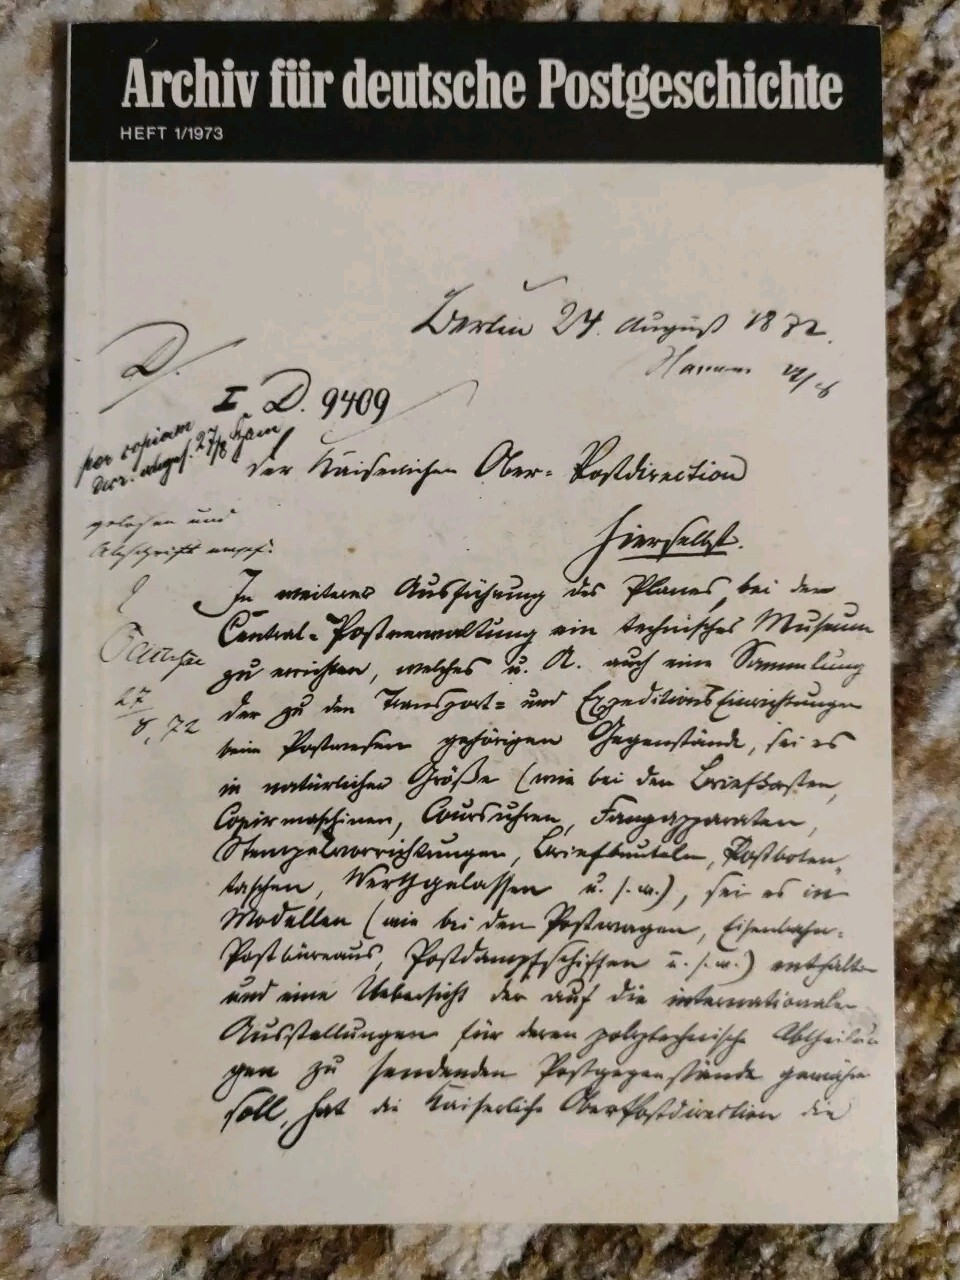 Archiv für deutsche Postgeschichte
HEFT 1/1973
Berlin 24. August 1872.
I D. 9409
per copiam
27/8
der Kaiserlichen Ober-Postdirection
gelesen und
Abschrift
hierselbst.
In weiterer Ausführung des Planes, bei dem
Central-Postverwaltung ein technisches Museum
zu errichten, welches u. A. auch eine Sammlung
27/8, 72
der zu den Transport- und ExpeditionsEinrichtungen
beim Postwesen gehörigen Gegenstände, sei es
in natürlicher Größe (wie bei den Briefkasten,
Copirmaschinen, Coursuhren, Fangapparaten,
Stempelvorrichtungen, Briefbeuteln, Postboten-
taschen, Werthgelassen u. s. w.), sei es in
Modellen (wie bei den Postwagen, Eisenbahn-
Postbüreaus, Postdampfschiffen u. s. w.) enthalten
und eine Uebersicht der auf die internationalen
Ausstellungen für deren polytechnische Abtheilun
gen zu sendenden Postgegenstände gewähren
soll, hat die Kaiserliche OberPostdirection die